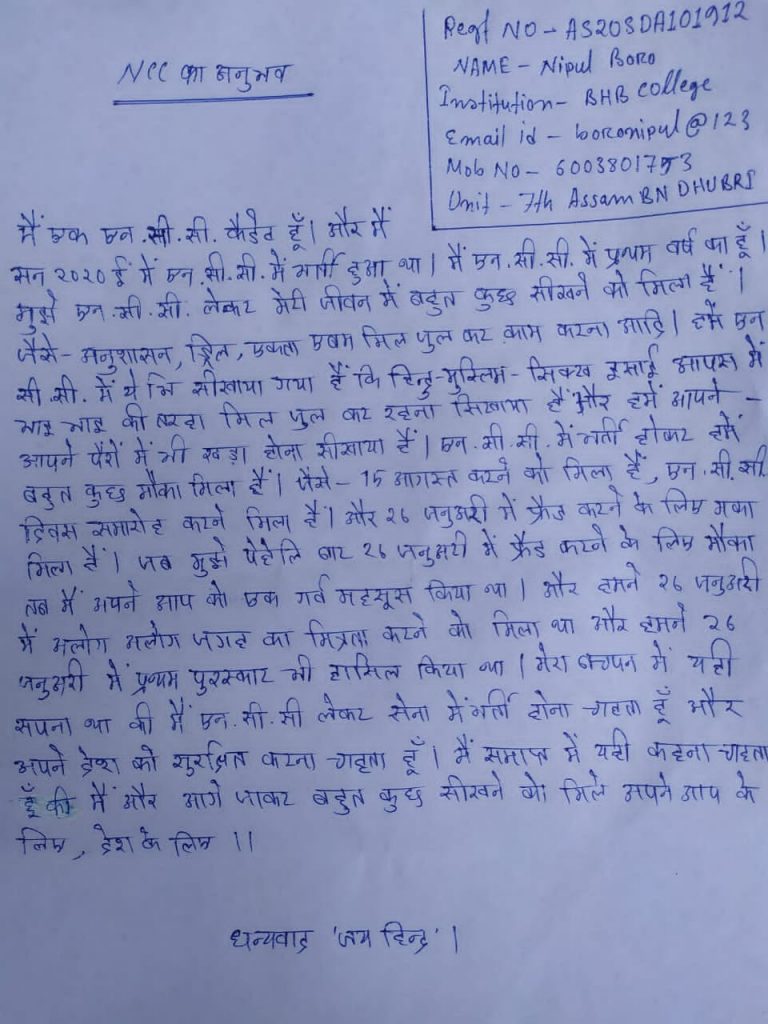 Regt NO - AS20SDA101912
NAME - Nipul Boro
Institution - BHB College
Email id - boronipul@123
Mob No - 6003801753
Unit - 7th Assam BN DHUBRI
NCC का अनुभव
मैं एक एन.सी.सी. कैडेट हूँ। और मैं
सन 2020 ई में एन.सी.सी. में भर्ती हुआ था। मैं एन.सी.सी. में प्रथम वर्ष का हूँ।
मुझे एन.सी.सी. लेकर मेरी जीवन में बहुत कुछ सीखने को मिला हैं।
जैसे - अनुशासन, ड्रिल, एकता एवम मिल जुल कर काम करना आदि। हमें एन
सी.सी. में ये भि सीखाया गया हैं कि हिन्दु-मुस्लिम-सिक्ख इसाई आपस में
भाइ भाइ की तरहा मिल जुल कर रहना सिखाया हैं और हमें आपने -
आपने पैरों में भी खड़ा होना सीखाया हैं। एन.सी.सी. में भर्ती होकर हमें
बहुत कुछ मौका मिला हैं। जैसे - 15 आगस्त करने को मिला हैं, एन.सी.सी.
दिवस समारोह करने मिला हैं। और 26 जनुअरी में प्रैड करने के लिए मका
मिला हैं। जब मुझे पेहेलि बार 26 जनुअरी में प्रैड करने के लिए मौका
तब मैं अपने आप को एक गर्व महसूस किया था। और हमने 26 जनुअरी
में अलोग अलोग जगह का मित्रता करने को मिला था और हमने 26
जनुअरी में प्रथम पुरस्कार भी हासिल किया था। मेरा बच्पन में यही
सपना था की मैं एन.सी.सी लेकर सेना में भर्ती होना चाहता हूँ और
अपने देश को सुरक्षित करना चाहता हूँ। मैं समाप्त में यही कहना चाहता
हूँ की मैं और आगे जाकर बहुत कुछ सीखने को मिले अपने आप के
लिए, देश के लिए ।।
धन्यवाद 'जय हिन्द'।